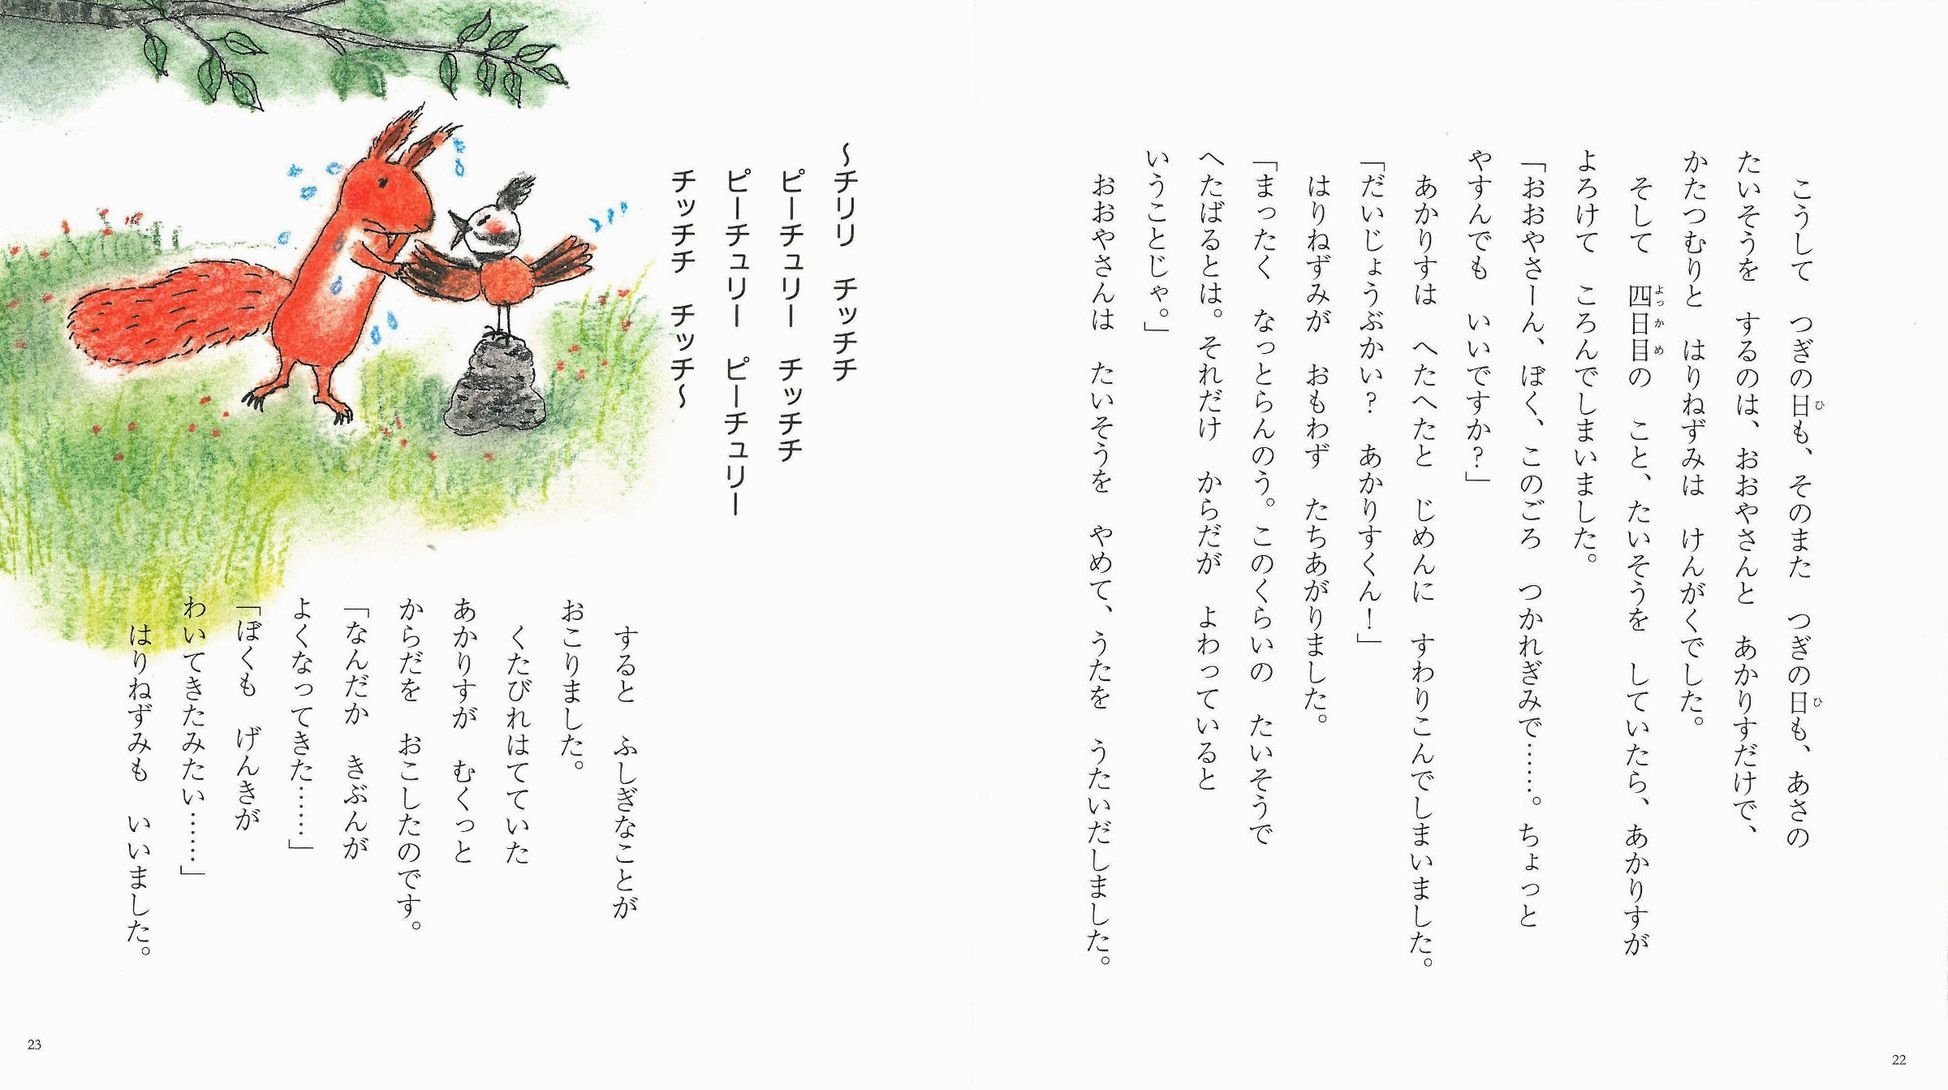 こうして　つぎの日も、そのまた　つぎの日も、あさの
たいそうを　するのは、おおやさんと　あかりすだけで、
かたつむりと　はりねずみは　けんがくでした。
　そして　四日目の　こと、たいそうを　していたら、あかりすが
よろけて　ころんでしまいました。
「おおやさーん、ぼく、このごろ　つかれぎみで……。ちょっと
やすんでも　いいですか？」
　あかりすは　へたへたと　じめんに　すわりこんでしまいました。
「だいじょうぶかい？　あかりすくん！」
　はりねずみが　おもわず　たちあがりました。
「まったく　なっとらんのう。このくらいの　たいそうで
へたばるとは。それだけ　からだが　よわっていると
いうことじゃ。」
　おおやさんは　たいそうを　やめて、うたを　うたいだしました。
22
～チリリ　チッチチ
　ピーチュリー　チッチチ
　ピーチュリー　ピーチュリー
　チッチチ　チッチ～
　すると　ふしぎなことが
おこりました。
　くたびれはてていた
あかりすが　むくっと
からだを　おこしたのです。
「なんだか　きぶんが
よくなってきた……」
「ぼくも　げんきが
わいてきたみたい……」
　はりねずみも　いいました。
23